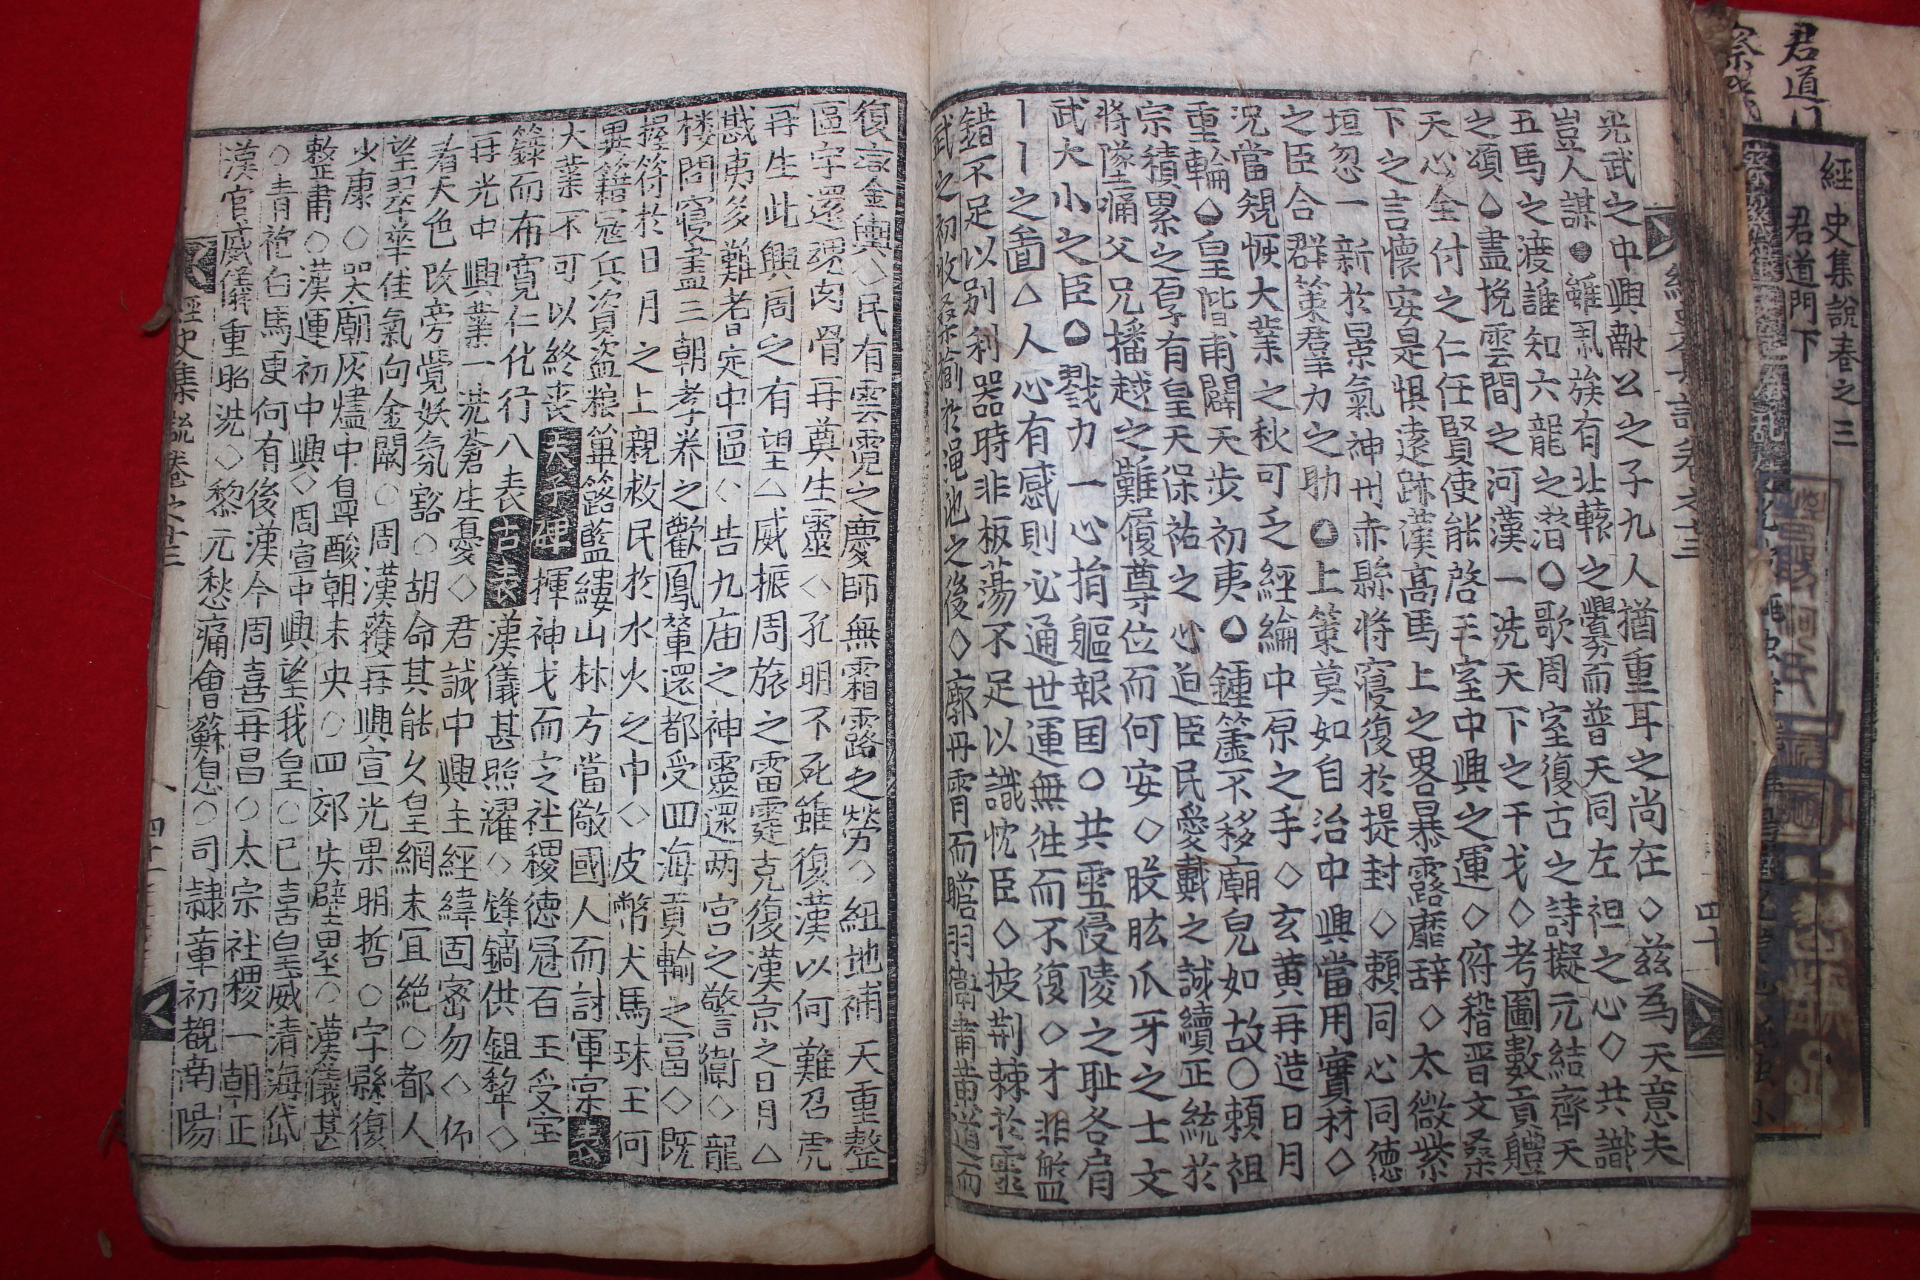 光武之中興敵公之子九人猶重耳之尚在◇茲為天意夫
豈人謀●雖亂族有北轅之釁而普天同左袒之心◇共識
五馬之渡誰知六龍之潛○歌周室復古之詩擬元結齊天
之頌△盡挽雲間之河漢一洗天下之干戈◇考圖數貢軆
天心全付之仁任賢使能啓王室中興之運◇府稽晉文桑
下之言懷安是惧遠跡漢高馬上之畧暴露靡辞◇太微紫
垣忽一新於景氣神州赤縣將寖復於提封◇賴同心同德
之臣合群策羣力之助○上策莫如自治中興當用實材◇
況當覜恢大業之秋可乏經綸中原之手◇玄黃再造日月
重輪○皇階甫闢天步初夷○鍾簴不移廟皃如故○賴祖
宗積累之厚有皇天保祐之心迫臣民愛戴之誠續正統於
將墜痛父兄播越之難履尊位而何安◇股肱爪牙之士文
武大小之臣○戮力一心捐軀報国○共雪侵陵之耻各肩
丨丨之啚△人心有感則必通世運無徃而不復◇才非盤
錯不足以别利器時非板蕩不足以識忱臣◇披荆棘於靈
武之初收桑榆於澠池之後◇廓丹霄而瞻羽衛肅黃道而
復金輿◇民有雲霓之慶師無霜露之勞◇紐地補天重整
區宇還魂肉骨再奠生靈◇孔明不死雖復漢以何難召虎
再生此興周之有望△威振周旅之雷霆克復漢京之日月△
戡夷多難耆定中區◇告九庙之神靈還两宮之警衛◇龍
楼問寢盡三朝孝养之歡鳳輦還都受四海貢輸之富◇既
握符於日月之上親救民於水火之中◇皮幣犬馬珠玉何
異籍寇兵次資盗粮篳簬藍縷山林方當儆國人而討軍实表
大業不可以終丧天子碑揮神戈而玄社稷德冠百王受宝
籙而布寬仁化行八表古表漢儀甚照耀◇鋒鏑供鉏犂◇
再光中興業一洗蒼生憂◇君誠中興主經緯固密勿◇仰
看天色改旁覺妖氛豁○胡命其能久皇網未宜絶○都人
望翠華佳氣向金闕○周漢獲再興宣光果明哲○宇縣復
少康○哭廟灰燼中鼻酸朝未央○四郊失壁壘○漢儀甚
整肅○漢運初中興◇周宣中興望我皇○已喜皇威清海岱
○青袍白馬更何有後漢今周喜再昌○太宗社稷一朝正
漢官威儀重昭洗◇黎元愁痛會蘇息○司隷章初覩南陽
經史集說卷之十三
四十
經史集說卷之十三
四十一
君道门
經史集說卷之三
君道門下